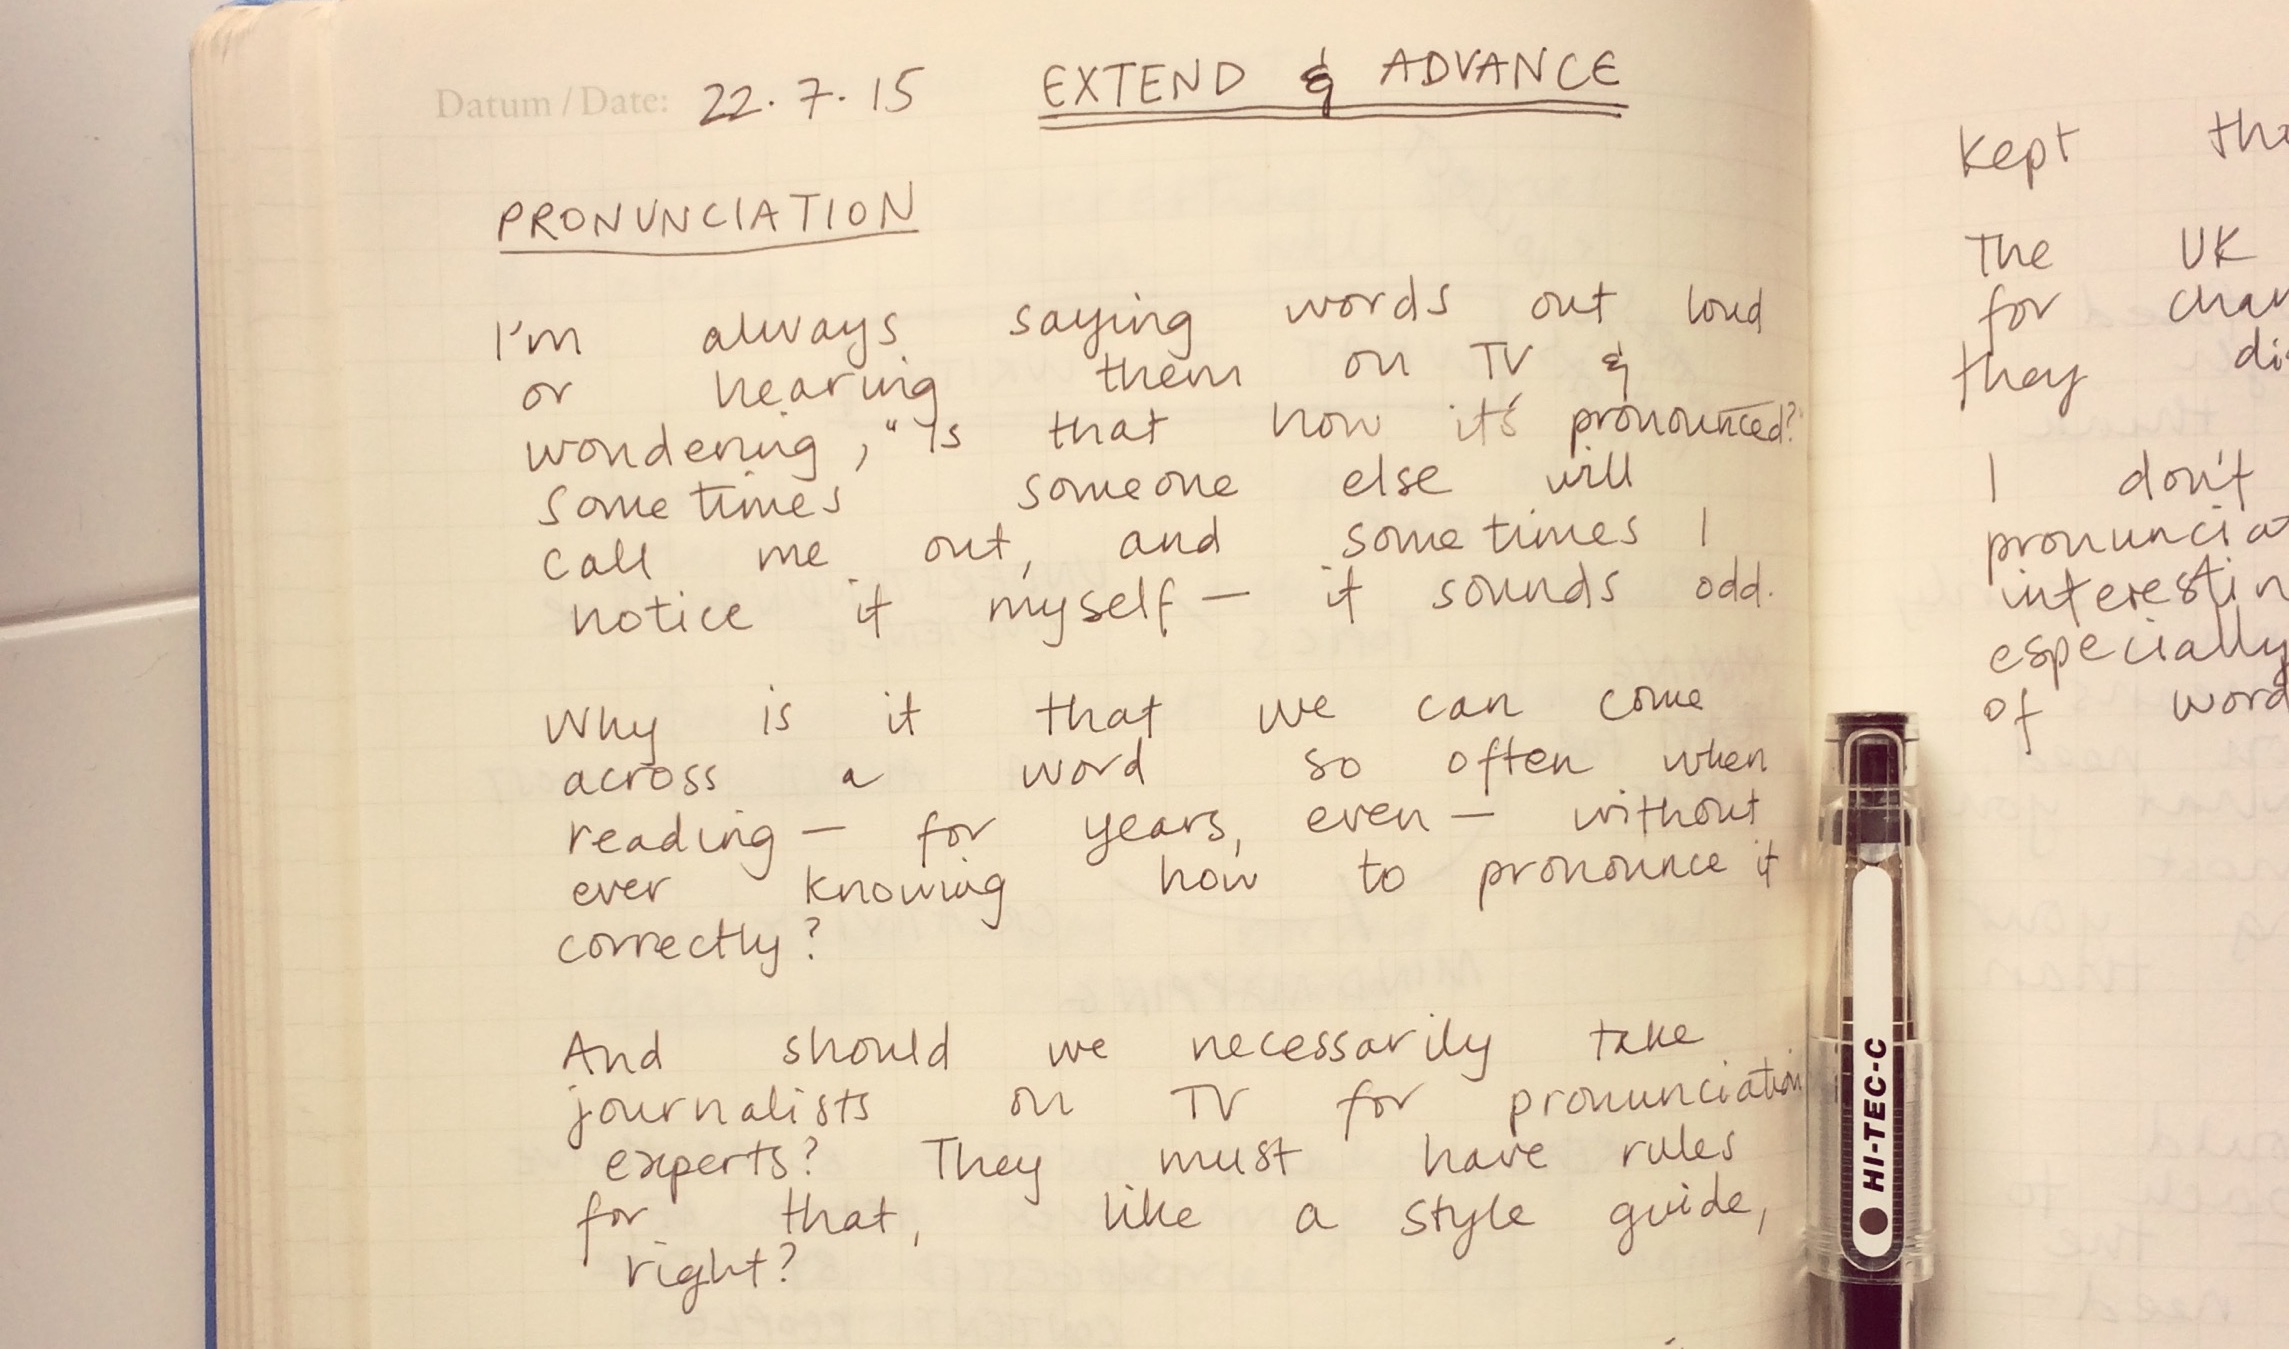 Datum / Date: 22.7.15 EXTEND & ADVANCE
PRONUNCIATION
I'm always saying words out loud
or hearing them on TV &
wondering, "Is that how it's pronounced?"
Sometimes someone else will
call me out, and sometimes I
notice it myself — it sounds odd.
Why is it that we can come
across a word so often when
reading — for years, even — without
ever knowing how to pronounce it
correctly?
And should we necessarily take
journalists on TV for pronunciation
experts? They must have rules
for that, like a style guide,
right?
kept
The UK
for
they
I don't
of
especially
HI-TEC-C